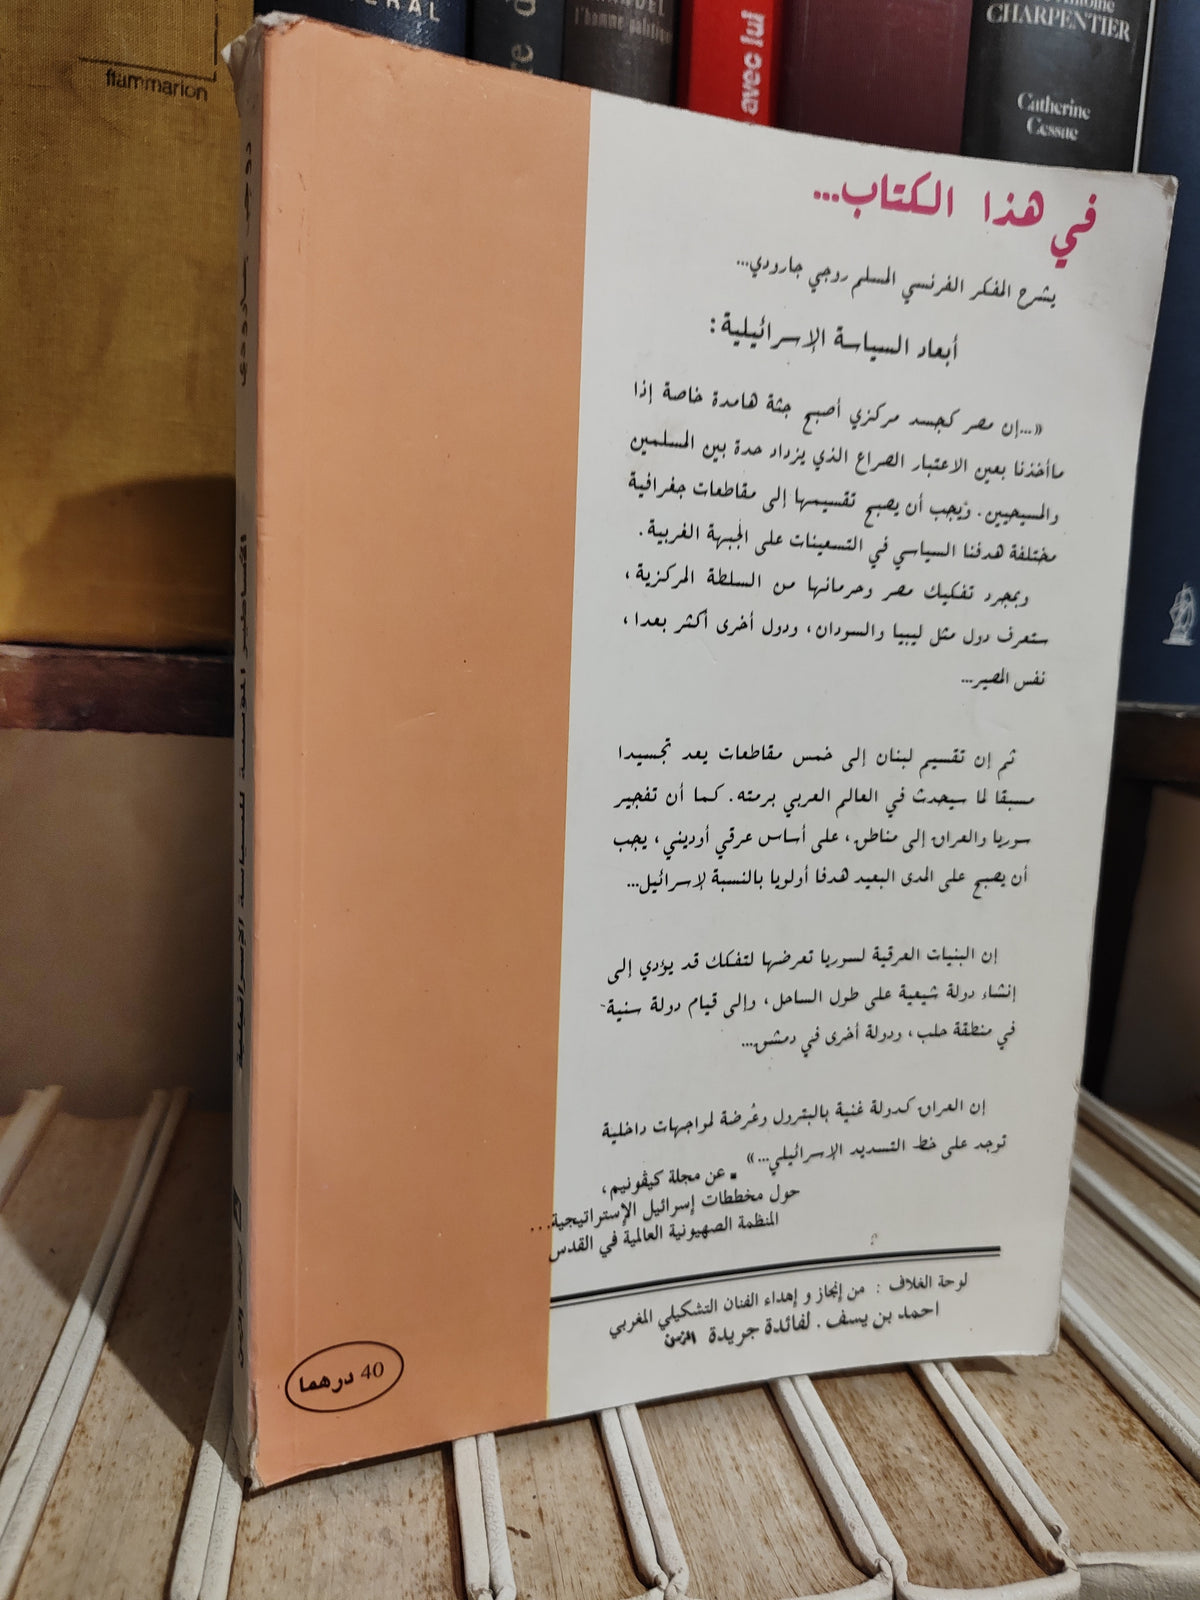 flammarion
avec lui
CHARPENTIER
Catherine
Cessue
في هذا الكتاب...
يشرح المفكر الفرنسي المسلم روجي جارودي...
أبعاد السياسة الإسرائيلية :
«...إن مصر كجسد مركزي أصبح جثة هامدة خاصة إذا
ماأخذنا بعين الاعتبار الصراع الذي يزداد حدة بين المسلمين
والمسيحيين. ويجب أن يصبح تقسيمها إلى مقاطعات جغرافية
مختلفة هدفنا السياسي في التسعينات على الجبهة الغربية.
وبمجرد تفكيك مصر وحرمانها من السلطة المركزية،
ستعرف دول مثل ليبيا والسودان، ودول أخرى أكثر بعدا،
نفس المصير...
ثم إن تقسيم لبنان إلى خمس مقاطعات يعد تجسيدا
مسبقا لما سيحدث في العالم العربي برمته. كما أن تفجير
سوريا والعراق إلى مناطق، على أساس عرقي أوديني، يجب
أن يصبح على المدى البعيد هدفا أولويا بالنسبة لإسرائيل...
إن البنيات العرقية لسوريا تعرضها لتفكك قد يؤدي إلى
إنشاء دولة شيعية على طول الساحل، وإلى قيام دولة سنية
في منطقة حلب، ودولة أخرى في دمشق...
إن العراق كدولة غنية بالبترول وعُرضة لمواجهات داخلية
توجد على خط التسديد الإسرائيلي...»
▪ عن مجلة كيڤونيم،
حول مخططات إسرائيل الإستراتيجية...
المنظمة الصهيونية العالمية في القدس
لوحة الغلاف : من إنجاز و إهداء الفنان التشكيلي المغربي
احمد بن يسف. لفائدة جريدة الزمن
40 درهما
روجي جارودي
الأساطير المؤسسة للسياسة الإسرائيلية